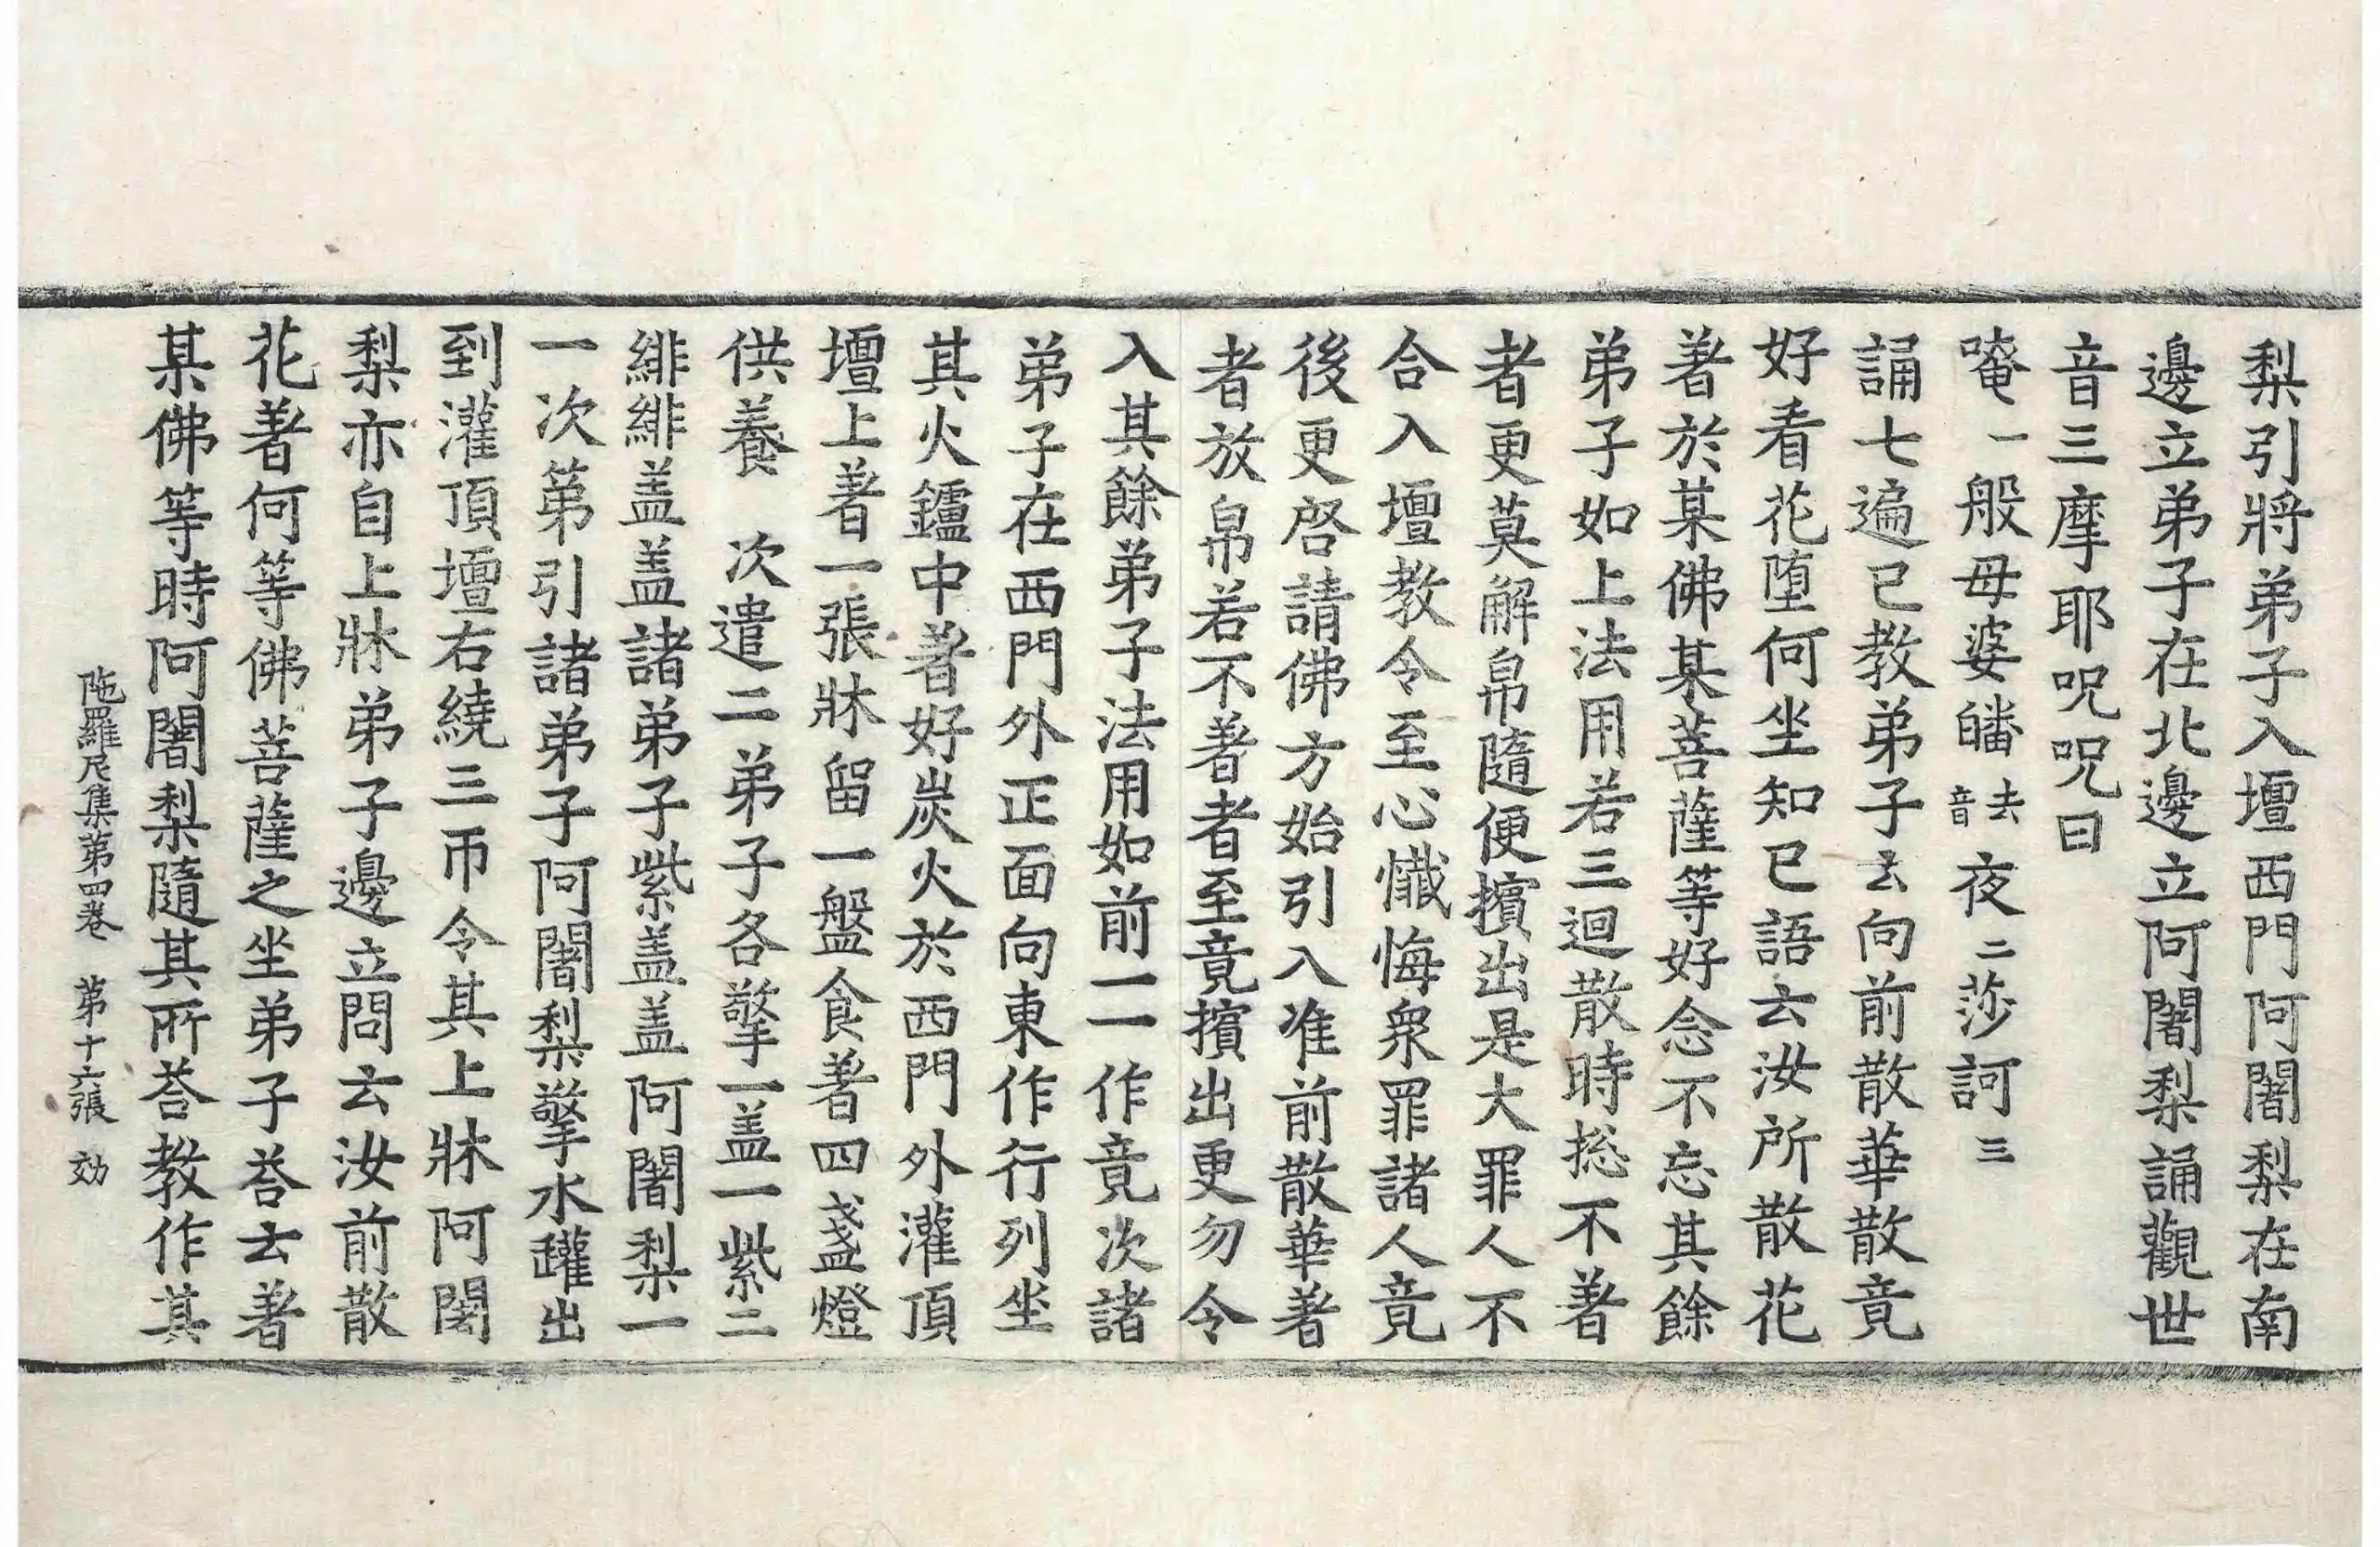 梨引將弟子入壇西門阿闍梨在南
邊立弟子在北邊立阿闍梨誦觀世
音三摩耶呪呪曰
唵一般母婆皤去音夜二莎訶三
誦七遍已教弟子云向前散華散竟
好看花墮何坐知已語云汝所散花
著於某佛某菩薩等好念不忘其餘
弟子如上法用若三迴散時捴不著
者更莫解帛隨便擯出是大罪人不
合入壇教令至心懺悔衆罪諸人竟
後更啓請佛方始引入准前散華著
者放帛若不著者至竟擯出更勿令
入其餘弟子法用如前一一作竟次諸
弟子在西門外正面向東作行列坐
其火鑪中著好炭火於西門外灌頂
壇上著一張牀留一盤食著四盞燈
供養　次遣二弟子各擎一盖一紫二
緋緋盖盖諸弟子紫盖盖阿闍梨一
一次第引諸弟子阿闍梨擎水罐出
到灌頂壇右繞三帀令其上牀阿闍
梨亦自上牀弟子邊立問云汝前散
花著何等佛菩薩之坐弟子荅云著
某佛等時阿闍梨隨其所荅教作其
陁羅尼集第四卷　第十六張　効